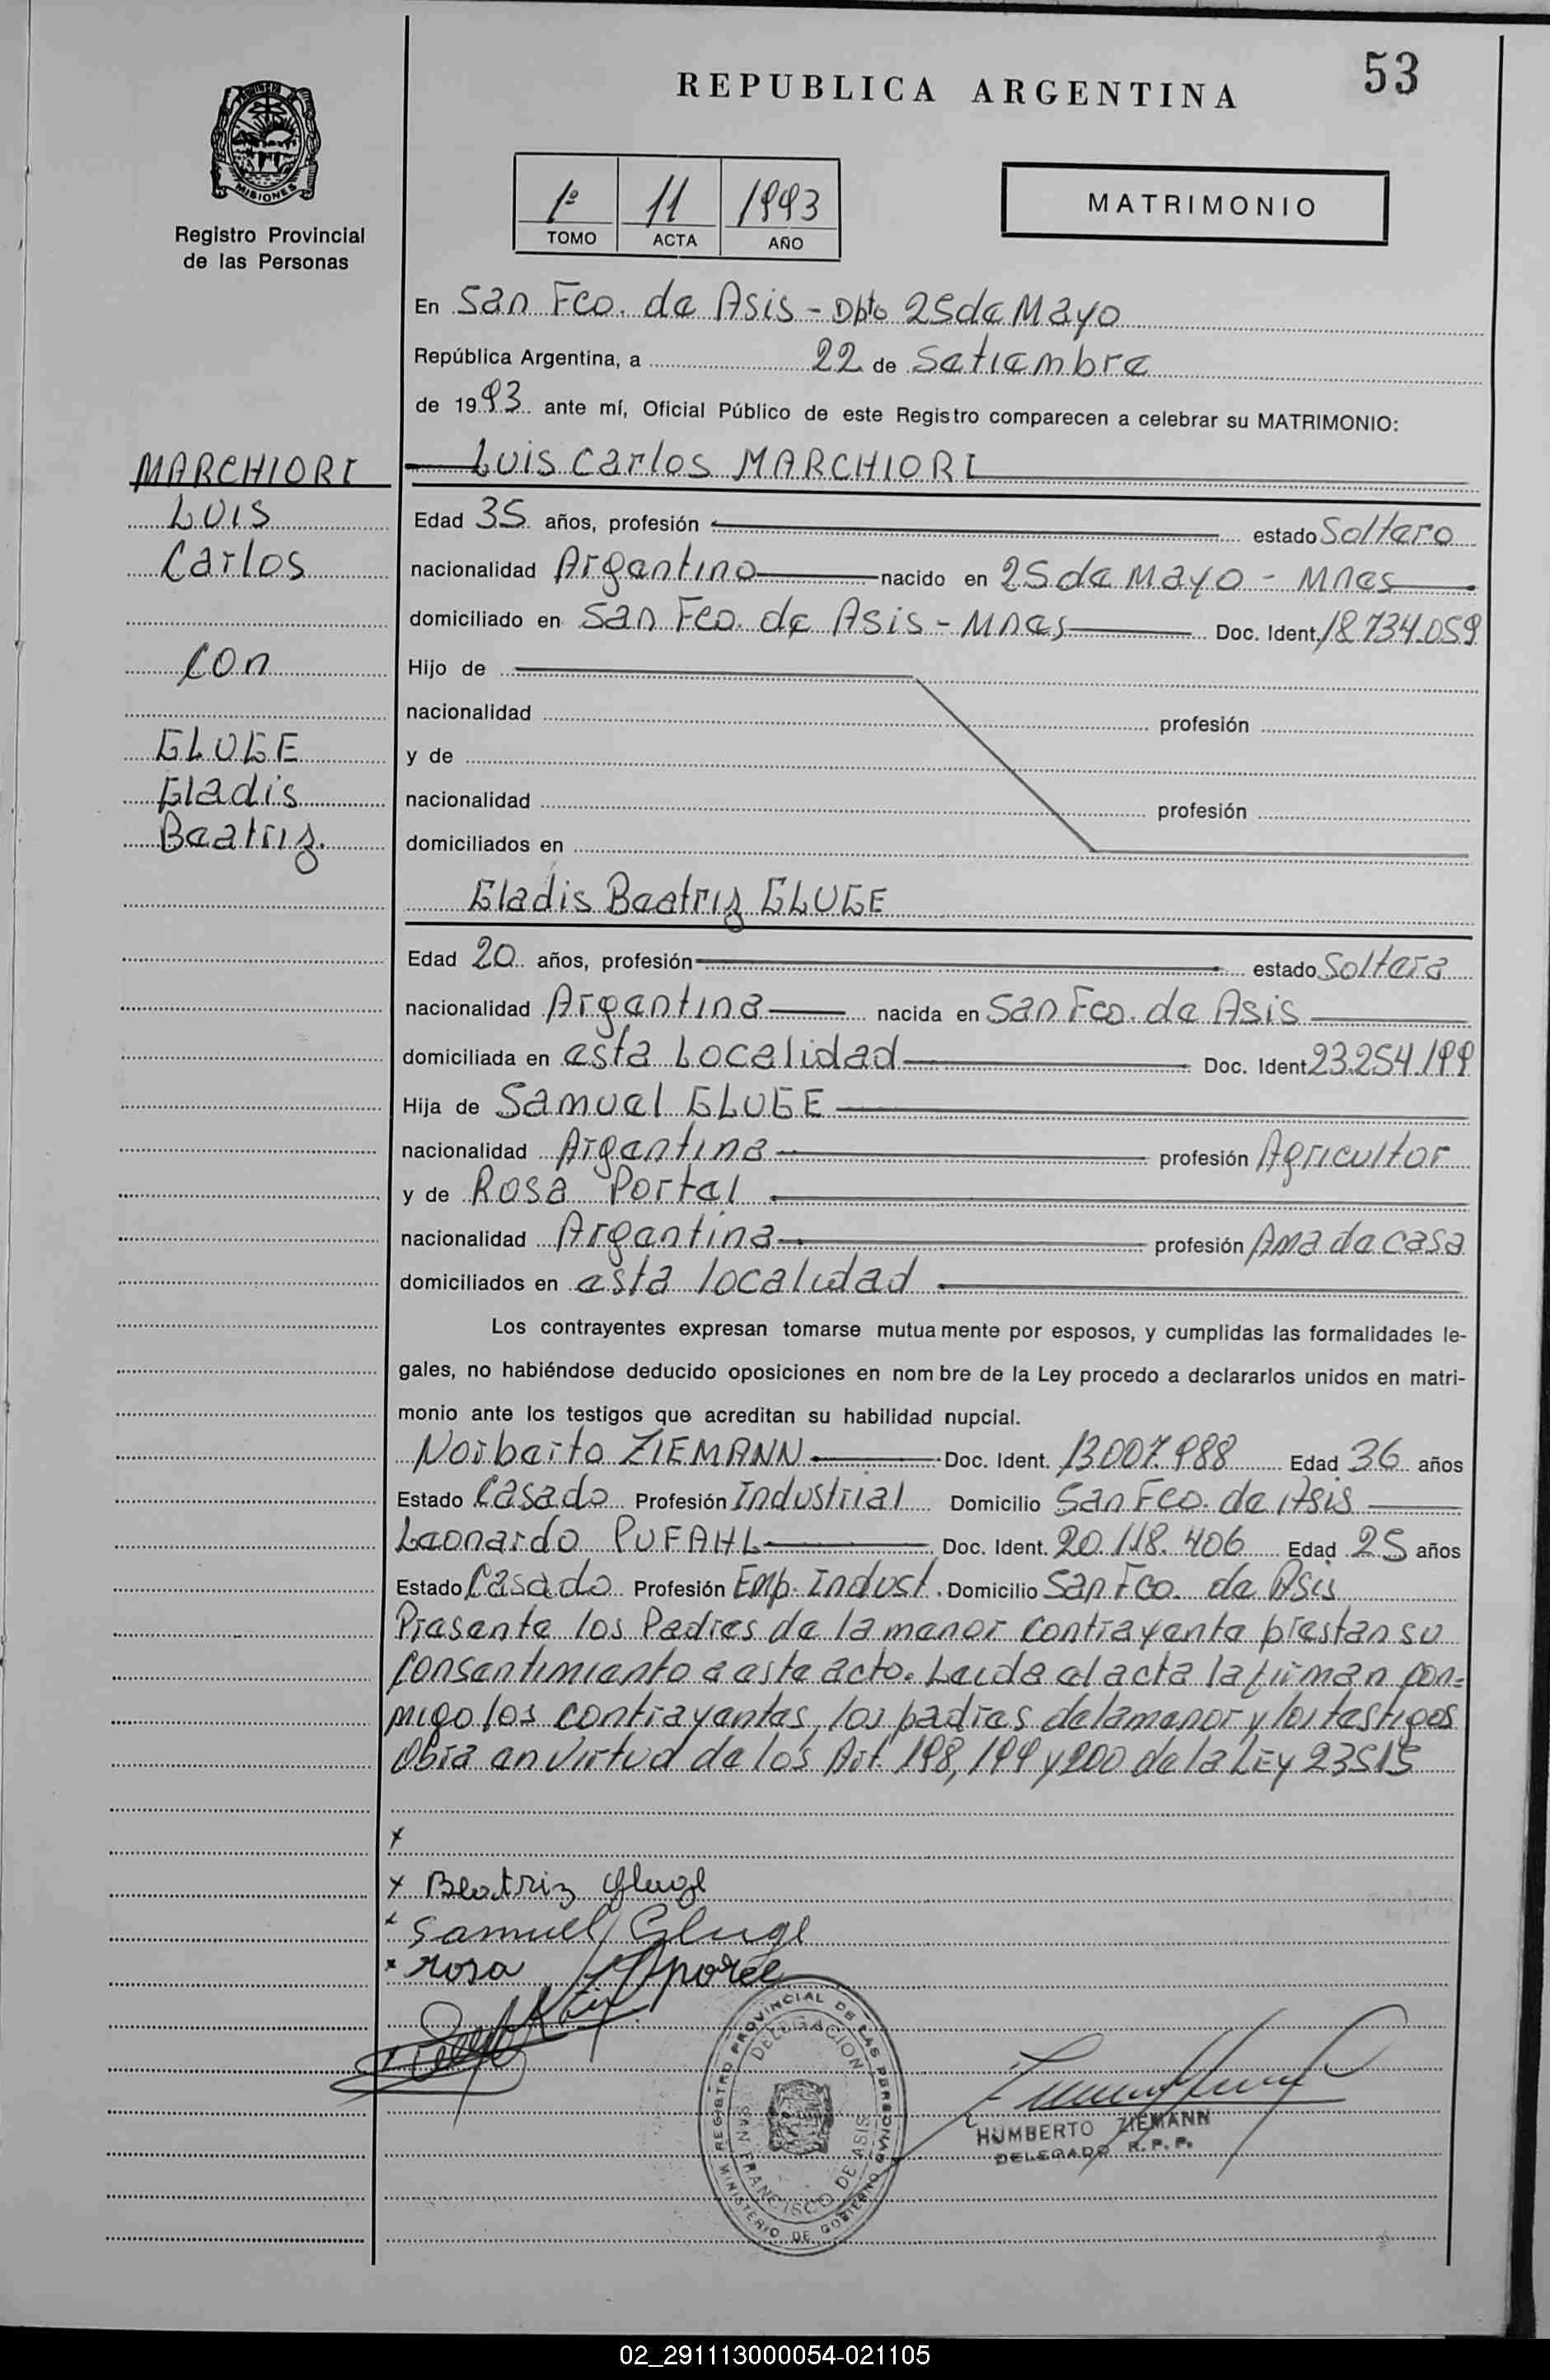 53
REPUBLICA ARGENTINA
MISIONES
Registro Provincial
de las Personas
1º 11 1993
TOMO ACTA AÑO
MATRIMONIO
En San Fco. de Asis - Dpto 25 de Mayo
República Argentina, a 22 de Setiembre
de 1993 ante mí, Oficial Público de este Registro comparecen a celebrar su MATRIMONIO:
MARCHIORI
Luis
Carlos
con
GLUGE
Gladis
Beatriz.
Luis Carlos MARCHIORI
Edad 35 años, profesión estado Soltero
nacionalidad Argentino nacido en 25 de Mayo - Mnes
domiciliado en San Fco. de Asis - Mnes Doc. Ident. 18.734.059
Hijo de
nacionalidad profesión
y de
nacionalidad profesión
domiciliados en
Gladis Beatriz GLUGE
Edad 20 años, profesión estado Soltera
nacionalidad Argentina nacida en San Fco. de Asis
domiciliada en esta Localidad Doc. Ident 23.254.199
Hija de Samuel GLUGE
nacionalidad Argentina profesión Agricultor
y de Rosa Portel
nacionalidad Argentina profesión Ama de casa
domiciliados en esta localidad
Los contrayentes expresan tomarse mutuamente por esposos, y cumplidas las formalidades le-
gales, no habiéndose deducido oposiciones en nombre de la Ley procedo a declararlos unidos en matri-
monio ante los testigos que acreditan su habilidad nupcial.
Norberto ZIEMANN Doc. Ident. 13.007.988 Edad 36 años
Estado Casado Profesión Industrial Domicilio San Fco. de Asis
Leonardo PUFAHL Doc. Ident. 20.118.406 Edad 25 años
Estado Casado Profesión Emp. Indust. Domicilio San Fco. de Asis
Presente los Padres de la menor contrayente prestan su
consentimiento a este acto. Leida el acta la firman con=
migo los contrayentes, los padres de la menor y los testigos
Obra en virtud de los Art. 198, 199 y 200 de la LEY 23515
x
x Beatriz Gluge
x Samuel Gluge
x rosa
REGISTRO PROVINCIAL DE LAS PERSONAS
MINISTERIO DE GOBIERNO
DELEGACION
SAN FRANCISCO DE ASIS
HUMBERTO ZIEMANN
DELEGADO R. P. P.
02_291113000054-021105